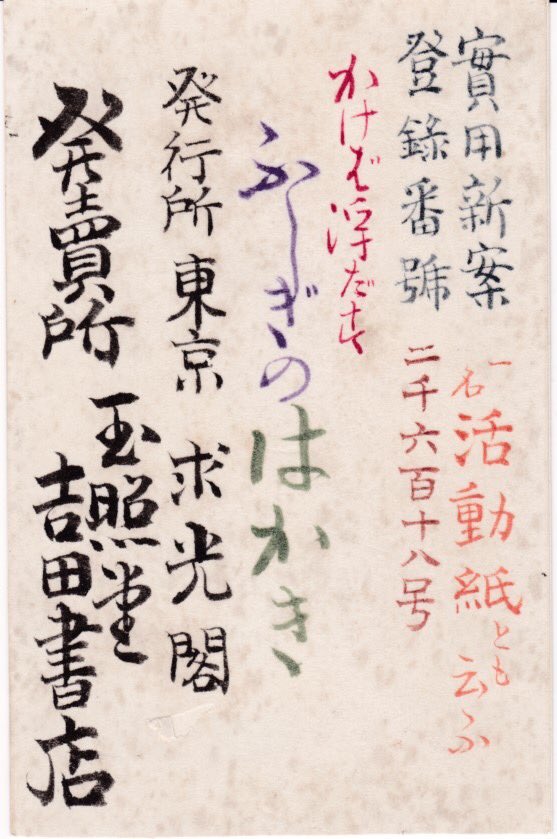 實用新案
一名活動紙とも云ふ
登録番號
二千六百十八号
かけば浮だす
ふしぎのはかき
発行所東京求光閣
発売所
玉照堂
吉田書店